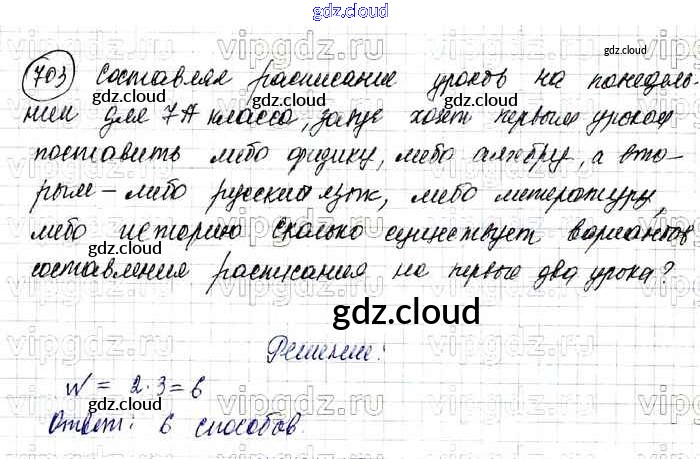 gdz.cloud
703 Составляя расписание уроков на понедель-
ник для 7А класса, завуч хочет первым уроком
поставить либо физику, либо алгебру, а вто-
рым - либо русский язык, либо литературу,
либо историю Сколько существует вариантов
составления расписания на первые два урока?
gdz.cloud
Решение:
W = 2·3=6
Ответ: 6 способов.